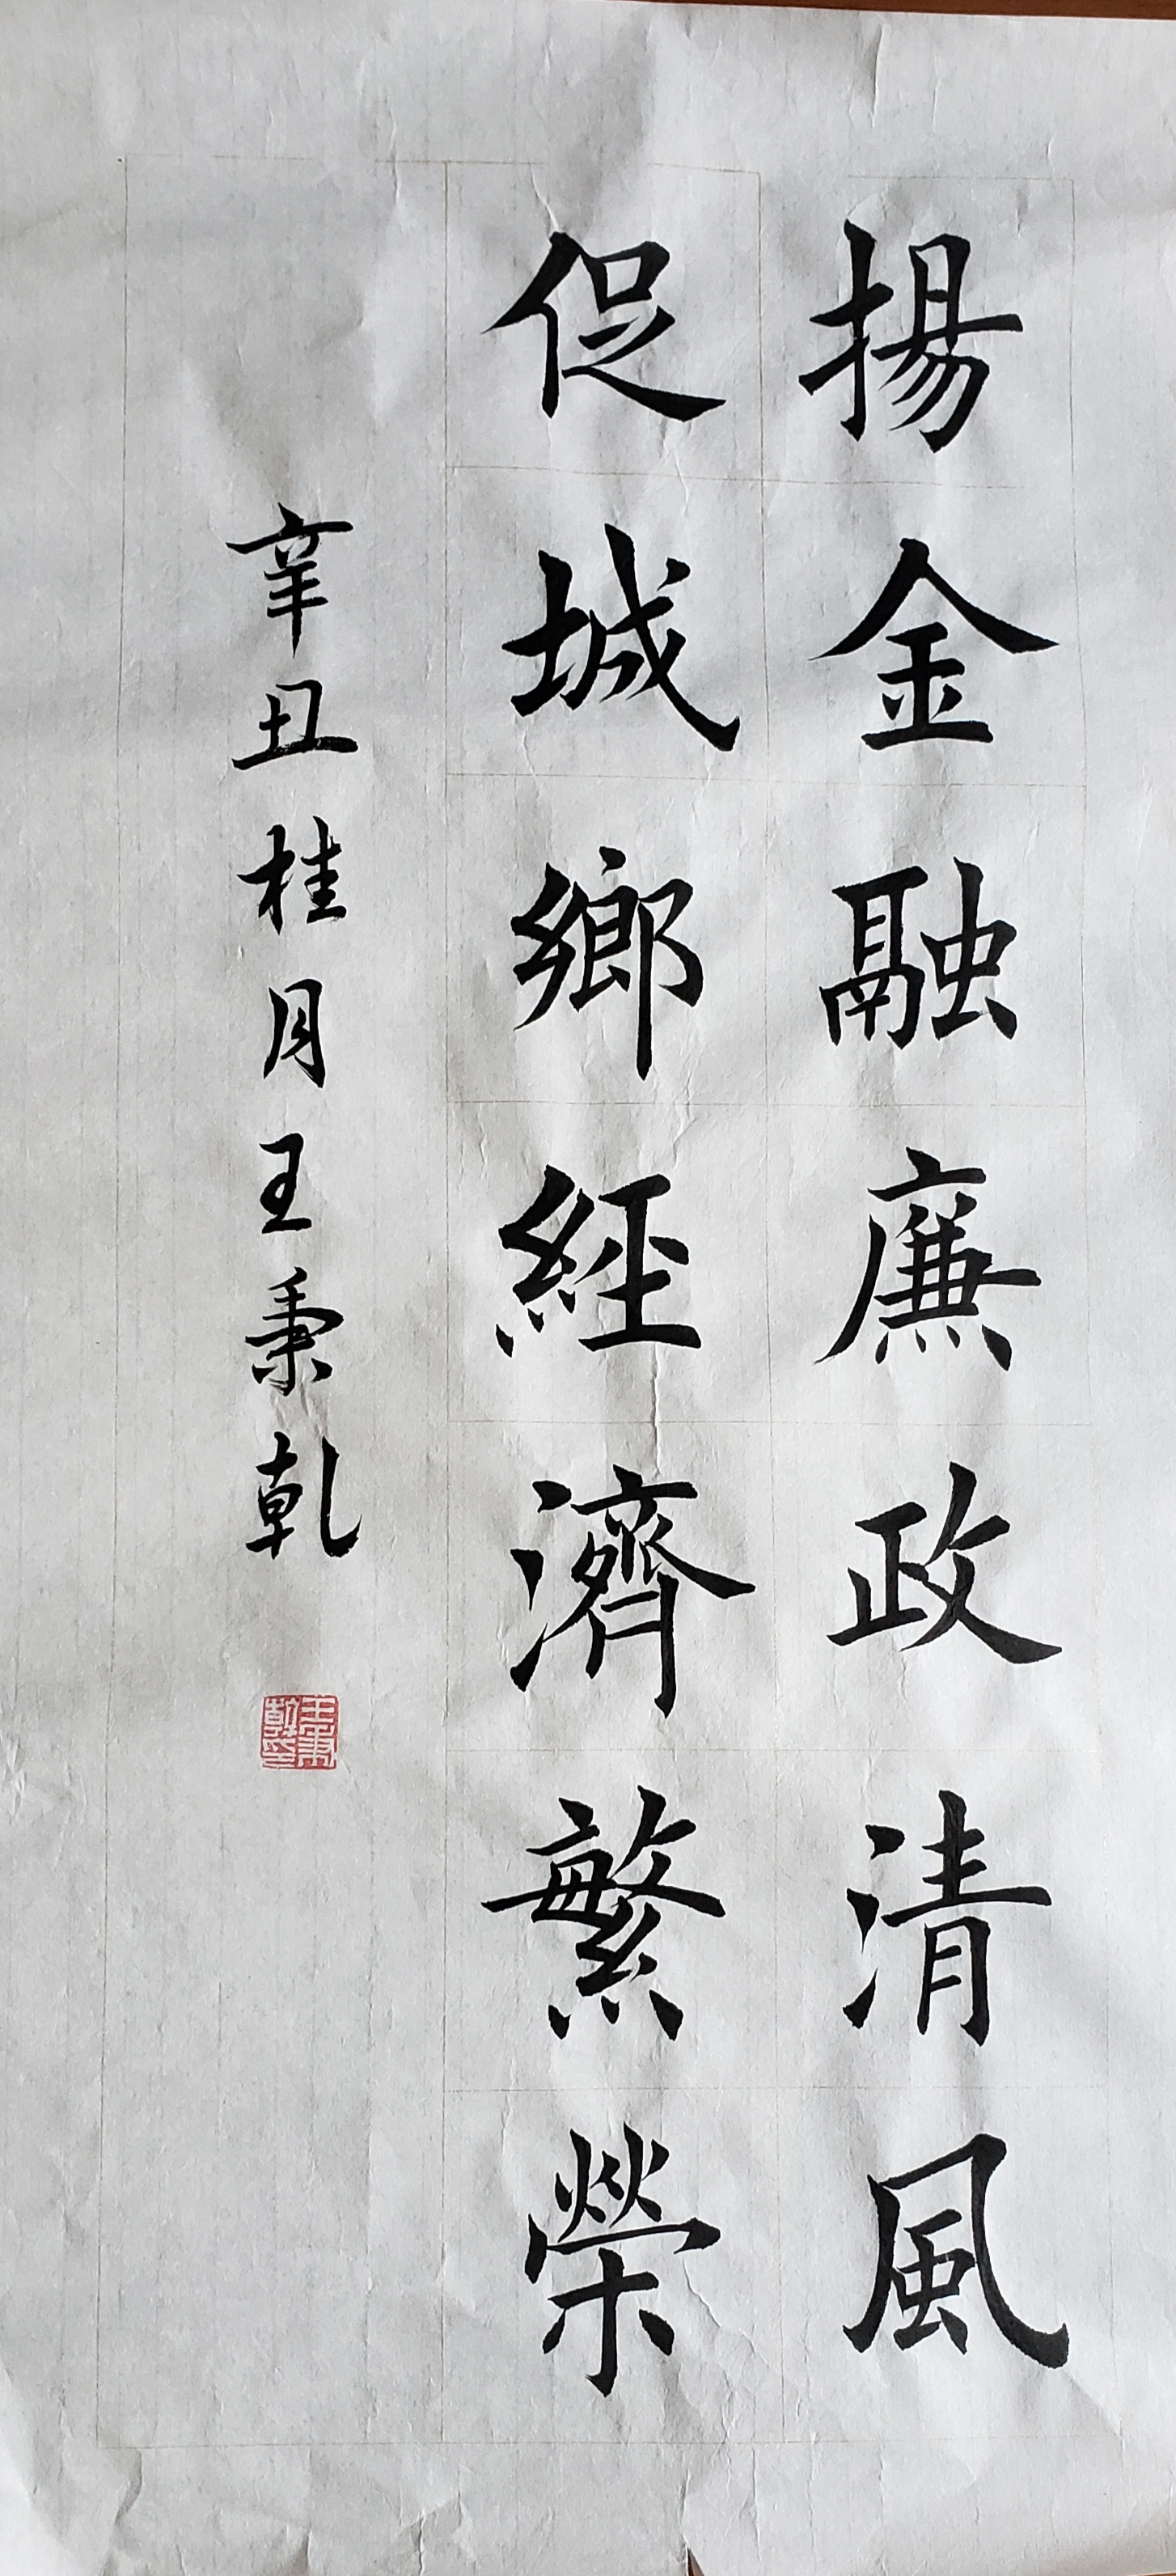 揚金融廉政清風
促城鄉經濟繁榮
辛丑桂月王秉乾
王秉乾印